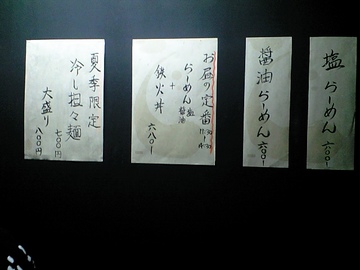 塩らーめん
六〇〇-
醤油らーめん
六〇〇-
お昼の定番
11:30
らーめん
塩
醤油
+
鉄火丼
六八〇-
夏季限定
冷し担々麺
七〇〇円
大盛り
八〇〇円